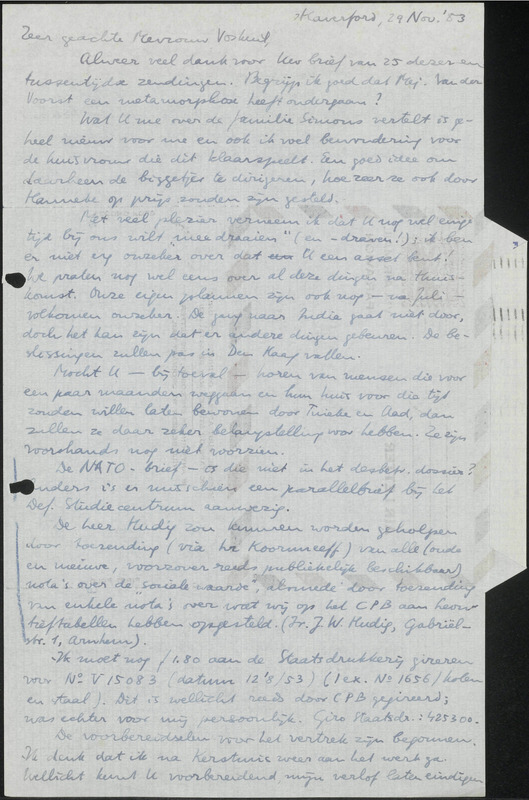 Haverford, 29 Nov.'53
Zeer geachte Mevrouw Voskuil,
Alweer veel dank voor Uw brief van 25 dezer en
tussentijdse zendingen. Begrijp ik goed dat Mej. Van der
Voorst een metamorphose heeft ondergaan?
Wat U me over de familie Simons vertelt is ge-
heel nieuw voor me en ook ik voel bewondering voor
de huisvrouw die dit klaarspeelt. Een goed idee om
daarheen de biggetjes te dirigeren, hoezeer ze ook door
Hanneke op prijs zouden zijn gesteld.
Met veel plezier verneem ik dat U nog wel enige
tijd bij ons wilt "meedraaien" (en -draven!); ik ben
er niet erg onzeker over dat U een asset bent!
We praten nog wel eens over al deze dingen na thuis-
komst. Onze eigen plannen zijn ook nog — na Juli —
volkomen onzeker. De gang naar India gaat niet door,
doch het kan zijn dat er andere dingen gebeuren. De be-
slissingen zullen pas in Den Haag vallen.
Mocht U — bij toeval — horen van mensen die voor
een paar maanden weggaan en hun huis voor die tijd
zouden willen laten bewonen door Tineke en Aad, dan
zullen ze daar zeker belangstelling voor hebben. Ze zijn
voorshands nog niet voorzien.
De NATO-brief — is die niet in het desbetr. dossier?
Anders is er misschien een parallelbrief bij het
Def. Studiecentrum aanwezig.
De heer Hudig zou kunnen worden geholpen
door toezending (via hr Koormneeff) van alle (oude
en nieuwe, voorzover reeds publiekelijk beschikbaar)
nota's over de "sociale waarde", alsmede door toezending
van enkele nota's over wat wij op het CPB aan
tieftabellen hebben opgesteld. (Ir. J.W. Hudig, Gabriël-
str. 1, Arnhem).
Ik moet nog f 1.80 aan de Staatsdrukkerij gireren
voor No V 15083 (datum 12'8/53) (1 ex. No 1656/kolen
en staal). Dit is wellicht reeds door CPB gegireerd;
was echter voor mij persoonlijk. Giro Staatsdr.: 425300.
De voorbereidselen voor het vertrek zijn begonnen.
Ik denk dat ik na Kerstmis weer aan het werk ga.
Wellicht kunt U voorbereidend, mijn verlof laten eindigen